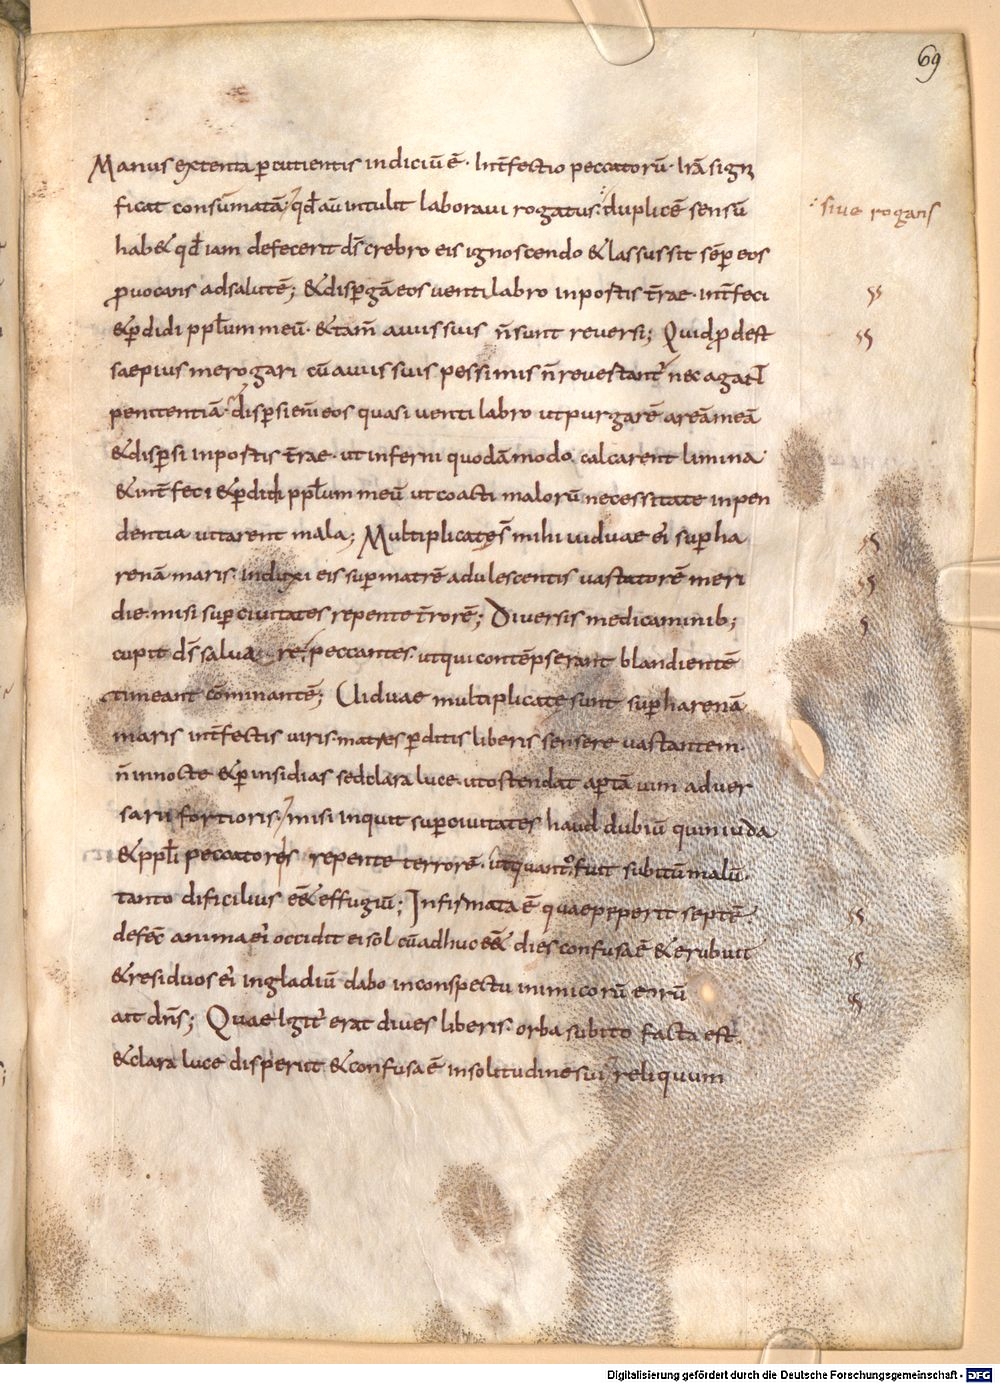 69
Manus extenta ꝑcutientis indiciū ē· Int̄fectio peccatorū· Irā signi
ficat consūmatā; qđ aū intulit laboraui rogatus; duplicē sensū
sive rogans
hab& qđ iam defecerit dr̄ crebro eis ignoscendo & lassus sit sēꝑ eos
ꝓuocans ad salutē; & disꝑgā eos ventilabro in portis t̄rae· int̄feci
& ꝑdidi ppl̄um meū· & tam̄ a uiis suis n̄ sunt reversi; Quid ꝓdest
saepius me rogari cū a uiis suis pessimis n̄ revertant̄ nec agant
penitentiā· disꝑsi eni̅ eos quasi ventilabro ut purgarē areā meā
& disꝑsi in portis t̄rae· ut inferni quodā modo calcarent limina
& int̄feci & ꝑdidi ppl̄um meū ut coacti malorū necessitate inpen
dentia uitarent mala; Multiplicatę s̄ mihi uiduae ei' suꝑ ha
renā maris· induxi eis suꝑ matrē adulescentis vastatorē meri
die· misi suꝑ ciuitates repente t̄rorē; Diversis medicaminib;
cupit dr̄ salua re peccantes ut qui contēpserant blandientē
timeant cōminantē; Uiduae multiplicatę sunt suꝑ harenā
maris int̄fectis viris· matres ꝑditis liberis sensere vastantem·
n̄ in nocte & ꝑ insidias sed clara luce· ut ostendat aꝑtā uim adver
sarii fortioris· misi inquit suꝑ ciuitates haud dubiū quin iuda
& ppl̄i peccatores repente terrorē· ut quanto fuit subitū malū·
tanto dificilius ēē& effugiū; Infirmata ē quae peperit septē
defec̄ anima ei' occidit ei sol cū adhuc ēē& dies confusa ē & erubuit
& residuos ei' in gladiū dabo in conspectu inimicorū eorū
ait dn̄s; Quae igit̄ erat dives liberis· orba subito facta est·
& clara luce disperiit & confusa ē in solitudine sui reliquum
Digitalisierung gefördert durch die Deutsche Forschungsgemeinschaft - DFG